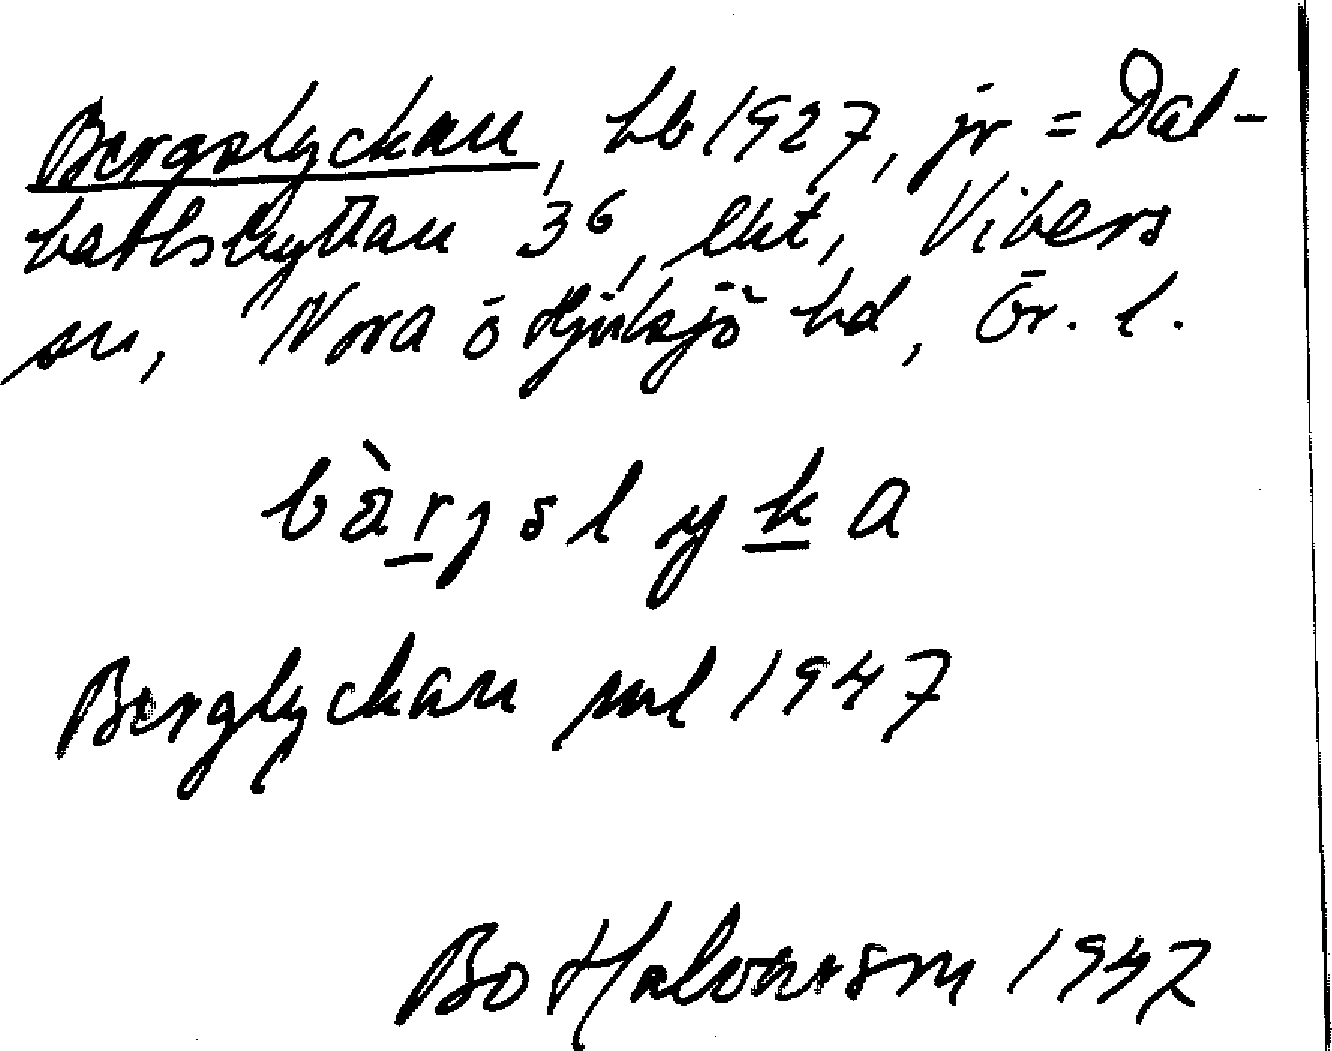 Bergslyckan, hb 1927, jr = Dal-
karlshyttan 36, lht, Vikers
sn, Nora o Hjulsjö hd, Ör. l.
bàrgslyka
Berglyckan ml 1947
Bo Halvarson 1947